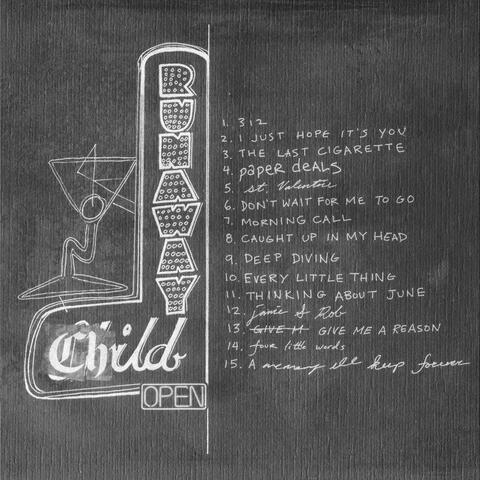 RUNAWAY
Child
OPEN
1. 312
2. I JUST HOPE IT'S YOU
3. THE LAST CIGARETTE
4. paper deals
5. st. Valentine
6. DON'T WAIT FOR ME TO GO
7. MORNING CALL
8. CAUGHT UP IN MY HEAD
9. DEEP DIVING
10. EVERY LITTLE THING
11. THINKING ABOUT JUNE
12. Jamie & Rob
13. GIVE M GIVE ME A REASON
14. four little words
15. A memory i'll keep forever